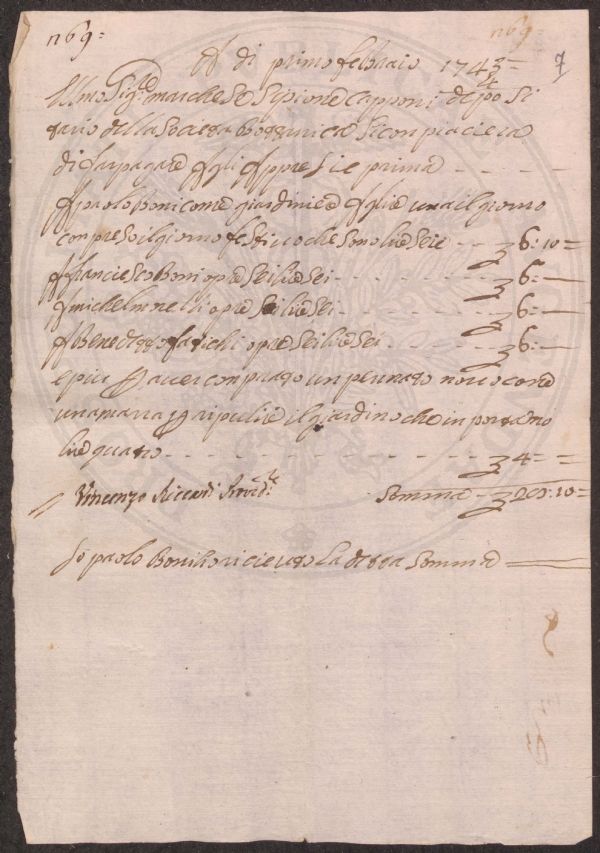 n 69:
n 69:
7
A di primo febraio 1743/4
Ill.mo Sig.re marchese Sipione Capponi deposi
tario della Società Bottanica Si conpiacierà
di far pagare a gli appresie prima
A paolo Boni come giardiniere a Giglie una il giorno
conpreso il giorno festivo che sono lire Seie - - 6:10=
A Franciesco Boni opre Sei lire Sei - - - - 6:-
A michel ninelli opre Sei lire Sei - - - - 6:-
A Benedetto fatichi opre Sei lire Sei - - - 6:-
e piu p aver conprato un pennato novo come
una marra p ripulire il giardino che inportano
lire quatro - - - - - - - - - 4=
Vincenzo Riccardi Provd.re Somma - 28:10=
Io paolo Boni ho ricieuto La detta Somma